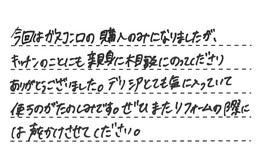 今回はガスコンロの購入のみになりましたが、
キッチンのことにも親身に相談にのってくださり
ありがとうございました。デリシアとても気に入っていて
使うのがたのしみです。ぜひまたリフォームの際に
は声をかけさせてください。